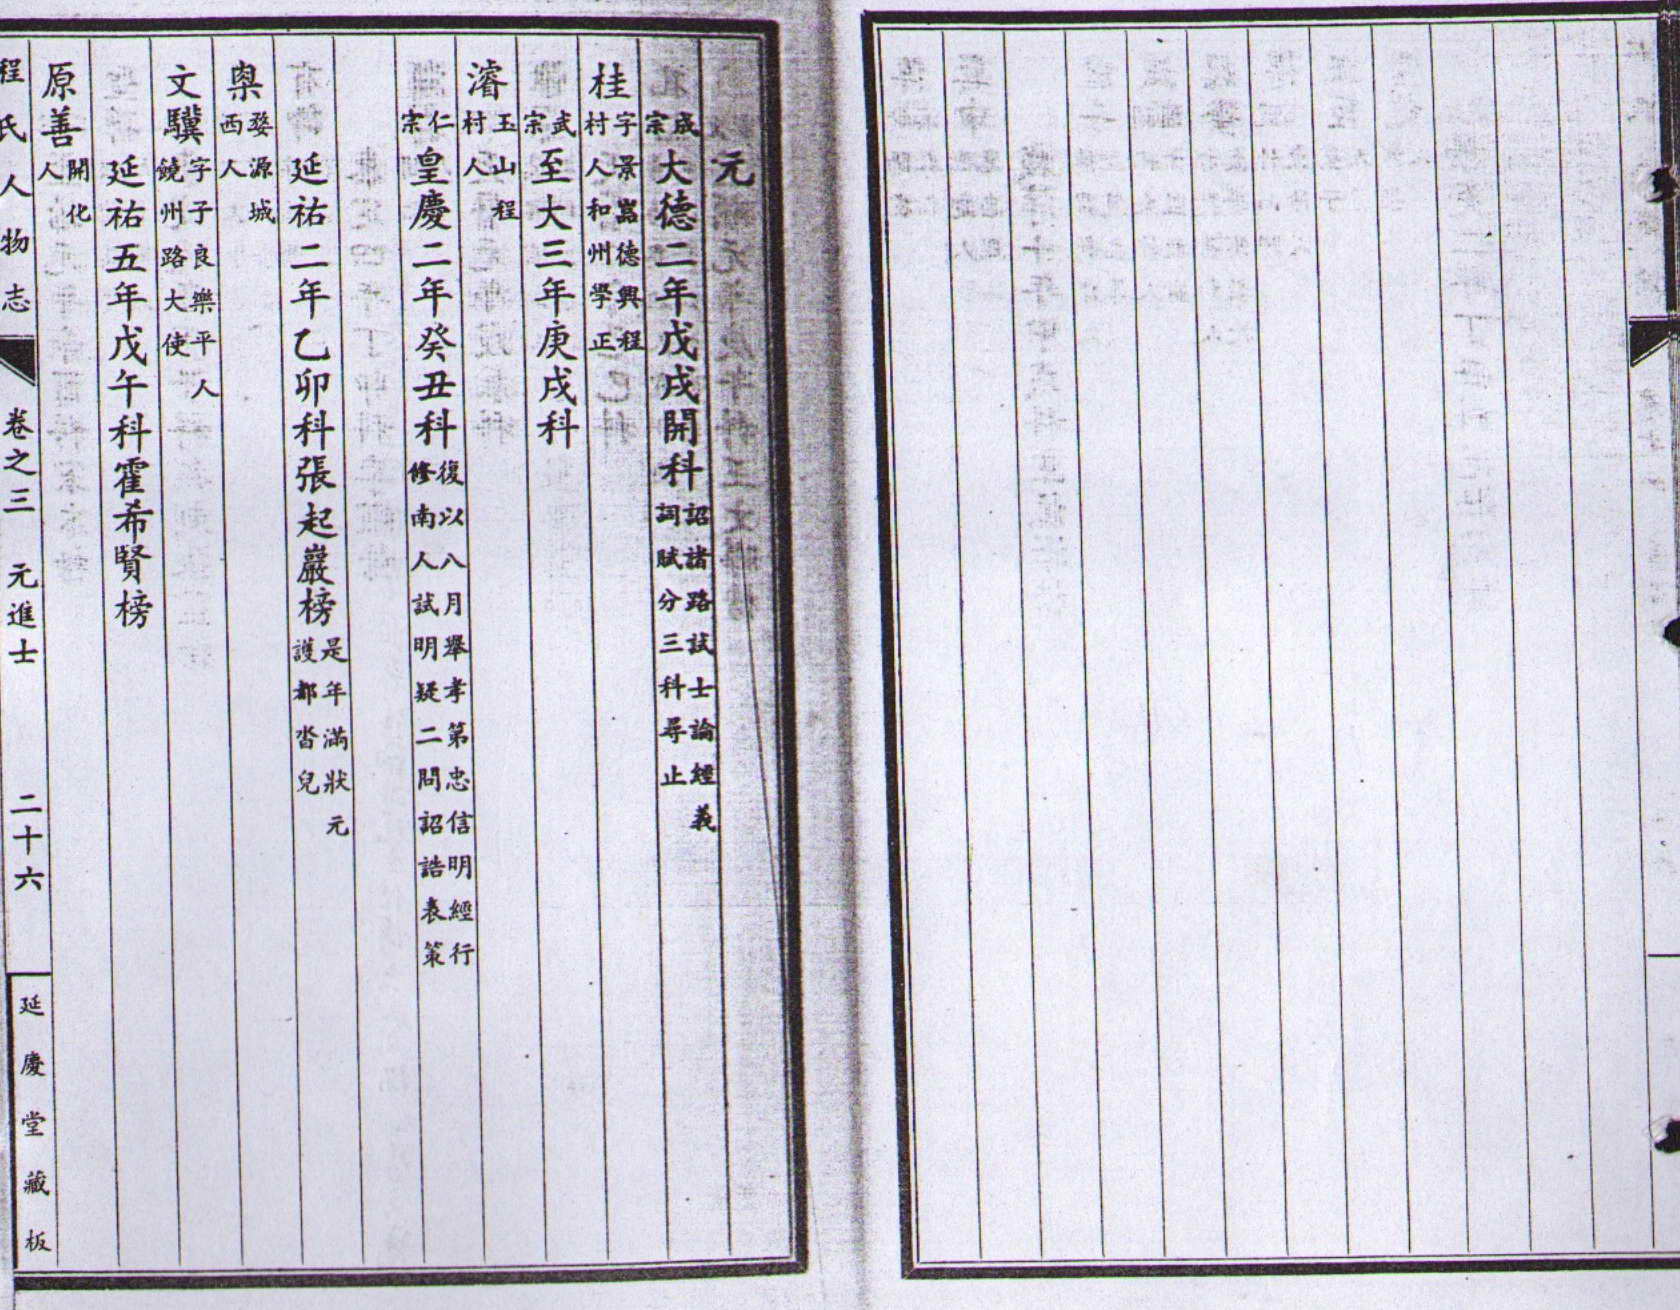 元
成宗大德二年戊戌開科詔諸路試士論經義詞賦分三科尋止
桂字景嵩德興程村人和州學正
武宗至大三年庚戌科
濬玉山程村人
仁宗皇慶二年癸丑科復以八月舉孝第忠信明經行修南人試明疑二問詔誥表策
延祐二年乙卯科張起巖榜是年滿狀元護都沓兒
㮤婺源城西人
文驥字子良樂平人饒州路大使
延祐五年戊午科霍希賢榜
原善開化人
程氏人物志 卷之三 元進士 二十六 延慶堂藏板